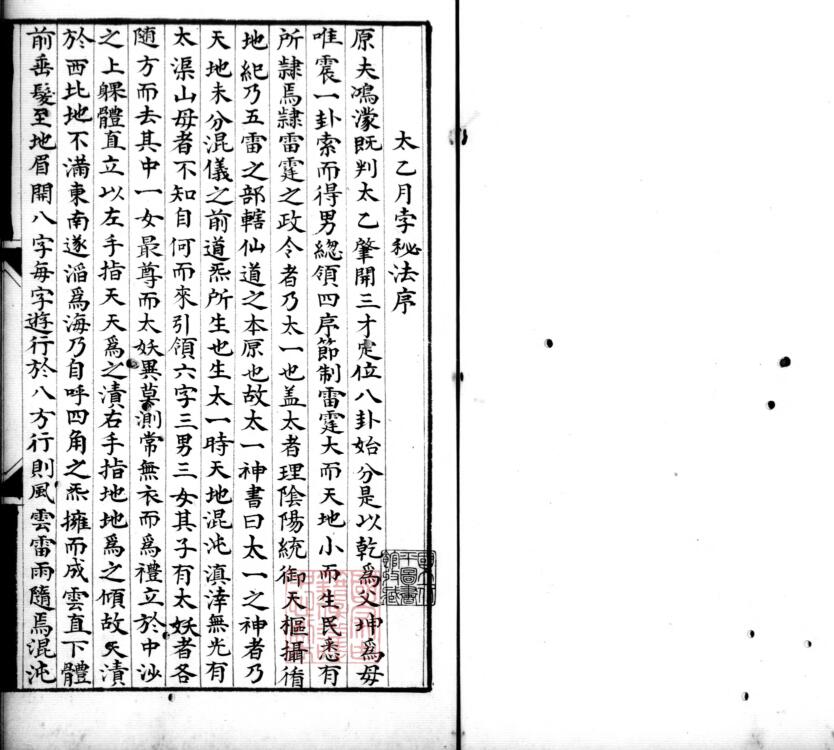 太乙月孛秘法序
原夫鴻濛既判太乙肇開三才定位八卦始分是以乾爲父坤爲母
唯震一卦索而得男緫領四序節制雷霆大而天地小而生民悉有
所隷焉隷雷霆之政令者乃太一也盖太者理陰陽統御天樞攝
地紀乃五雷之部轄仙道之本原也故太一神書曰太一之神者乃
天地未分混儀之前道炁所生也生太一時天地混沌滇涬無光有
太渠山母者不知自何而來引領六字三男三女其子有太妖者各
隨方而去其中一女最尊而太妖異莫測常無衣而爲禮立於中沙
之上躶體直立以左手指天天爲之漬右手指地地爲之傾故天漬
於西北地不滿東南遂滔爲海乃自呼四角之炁擁而成雲直下體
前垂髮至地眉開八字每字遊行於八方行則風雲雷雨隨焉混沌